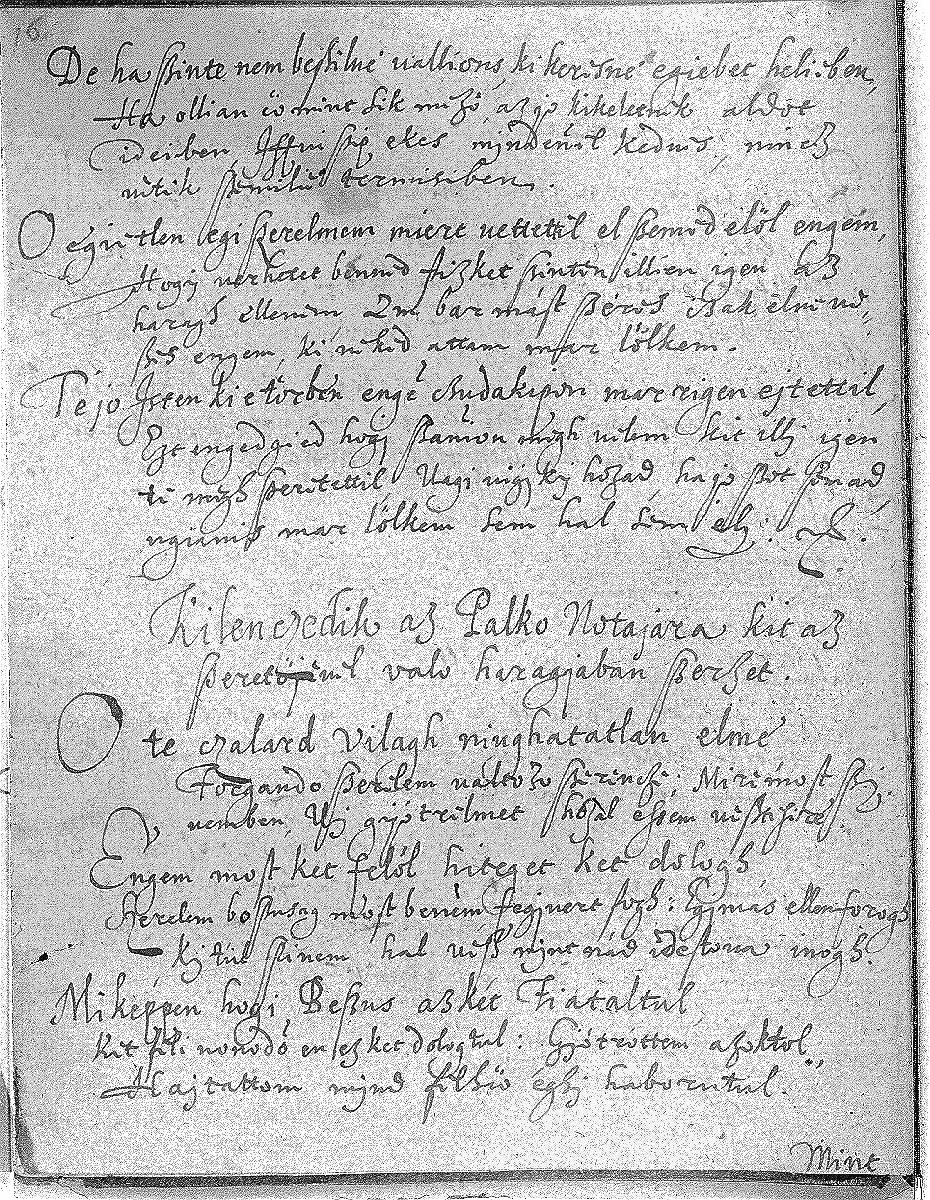 16
De ha szinte nem beszilne vallions ki kerisne egiebet heliben,
Ha ollian eö mint sik mizö, az jo kikeletnik aldot
ideiben, Iffui szip ekes mindenil kedvis, nincz
vitik szemilie termisiben.
O egietlen egi szerelmem miert vettettil el szemed elöl engem,
Hogi verhetet benned fizket szinten illien igen az
haragh ellenem Am bar mást szeres czak elmenis
szes engem, ki neked attam mar lölkem.
Te jo Isten ki e törben enge czudakipen mar rigen ejtettil,
Ezt engedgied hogi szanion migh velem kit illj igen
ti migh szeretettil, Uagi vigj kj hozad, ha jo szot szomad,
ugianis mar lölkem sem hal sem elj:
Kilenczedik az Palko Notajara kit az
szeretöjivel valo haragjaban szerzet.
O te czalard Vilagh niughatatlan elme
Forgando szerelem valtozo szerincze, Miri most szi
vemben, Uj gjötrilmet hozal essem veszi hire
Engem most ket felöl hiteget ket dologh
Szerelem boszusag most benem fegjvert fogh: Egjmás ellen forogh
Kj tüt szinem hal vész mint nád ide stova inogh.
Mikeppen hogi Beszus az ket Fiataltul
Kit fili vonodo en ez ket dologtul: Gjötröttem azoktol,
Hajtattom mind filhiö eghj haborutul.
Mint